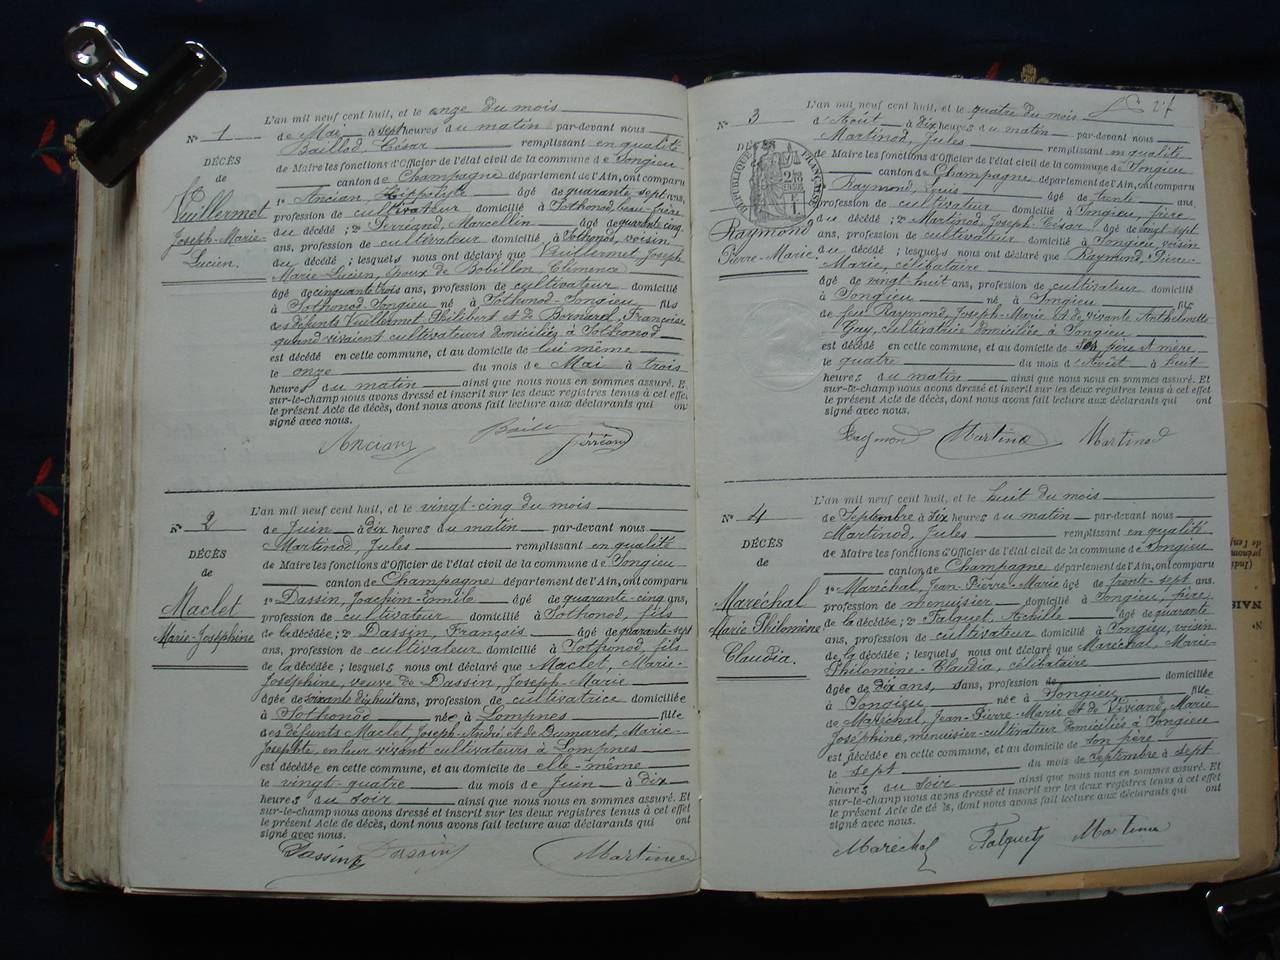 L'an mil neuf cent huit, et le onze du mois
N° 1
de Mai à sept heures du matin par-devant nous
Baillod César remplissant en qualité
DÉCÈS
de Maire les fonctions d'Officier de l'état civil de la commune de Songieu
de
canton de Champagne département de l'Ain, ont comparu
Vuillermet
1° Ancian Hippolyte âgé de quarante sept ans,
profession de cultivateur domicilié à Sothonod, beau-frère
Joseph-Marie-
du décédé ; 2° Perréand, Marcellin âgé de quarante cinq
Lucien.
ans, profession de cultivateur domicilié à Sothonod, voisin
du décédé ; lesquels nous ont déclaré que Vuillermet, Joseph-
Marie-Lucien, époux de Bobillon, Clémence
âgé de cinquante trois ans, profession de cultivateur domicilié
à Sothonod-Songieu né à Sothonod-Songieu fils
des défunts Vuillermet, Philibert et de Bornerel, Françoise
quand vivaient cultivateurs domiciliés à Sothonod
est décédé en cette commune, et au domicile de lui même
le onze du mois de Mai à trois
heures du matin ainsi que nous nous en sommes assuré. Et
sur-le-champ nous avons dressé et inscrit sur les deux registres tenus à cet effet
le présent Acte de décès, dont nous avons fait lecture aux déclarants qui ont
signé avec nous.
Ancian Perréand
L'an mil neuf cent huit, et le vingt-cinq du mois
N° 2
de Juin à dix heures du matin par-devant nous
Martinod, Jules remplissant en qualité
DÉCÈS
de Maire les fonctions d'Officier de l'état civil de la commune de Songieu
de
canton de Champagne département de l'Ain, ont comparu
Maclet
1° Dassin, Joachim-Emile âgé de quarante-cinq ans,
profession de cultivateur domicilié à Sothonod, fils
Marie-Joséphine
de la décédée ; 2° Dassin, François âgé de quarante-sept
ans, profession de cultivateur domicilié à Sothonod, fils
de la décédée ; lesquels nous ont déclaré que Maclet, Marie-
Joséphine, veuve de Dassin, Joseph-Marie
âgée de soixante dix huit ans, profession de cultivatrice domiciliée
à Sothonod née à Lompnes fille
des défunts Maclet, Joseph-André et de Dumaret, Marie-
Josephte en leur vivant cultivateurs à Lompnes
est décédée en cette commune, et au domicile de elle-même
le vingt-quatre du mois de Juin à dix
heures du soir ainsi que nous nous en sommes assuré. Et
sur-le-champ nous avons dressé et inscrit sur les deux registres tenus à cet effet
le présent Acte de décès, dont nous avons fait lecture aux déclarants qui ont
signé avec nous.
Dassin Dassin Martinod
27
L'an mil neuf cent huit, et le quatre du mois
N° 3
d'Août à dix heures du matin par-devant nous
Martinod, Jules remplissant en qualité
DÉCÈS
de Maire les fonctions d'Officier de l'état civil de la commune de Songieu
RÉPUBLIQUE FRANÇAISE
canton de Champagne département de l'Ain, ont comparu
1° Raymond, Louis âgé de trente ans,
profession de cultivateur domicilié à Songieu, frère
Raymond
du décédé ; 2° Martinod, Joseph-César âgé de vingt-sept
Pierre-Marie.
ans, profession de cultivateur domicilié à Songieu, voisin
du décédé ; lesquels nous ont déclaré que Raymond, Pierre-
Marie, célibataire
âgé de vingt-huit ans, profession de cultivateur domicilié
à Songieu né à Songieu fils
de feu Raymond, Joseph-Marie et de vivante Anthelmette
Gay, cultivatrice domiciliée à Songieu
est décédé en cette commune, et au domicile de ses père et mère
le quatre du mois d'Août à huit
heures du matin ainsi que nous nous en sommes assuré. Et
sur-le-champ nous avons dressé et inscrit sur les deux registres tenus à cet effet
le présent Acte de décès, dont nous avons fait lecture aux déclarants qui ont
signé avec nous.
Raymond Martinod Martinod
L'an mil neuf cent huit, et le huit du mois
N° 4
de Septembre à dix heures du matin par-devant nous
Martinod, Jules remplissant en qualité
DÉCÈS
de Maire les fonctions d'Officier de l'état civil de la commune de Songieu
de
canton de Champagne département de l'Ain, ont comparu
Maréchal
1° Maréchal, Jean-Pierre-Marie âgé de trente-sept ans.
profession de menuisier domicilié à Songieu, père
Marie Philomène
de la décédée ; 2° Falquet, Achille âgé de quarante
ans, profession de cultivateur domicilié à Songieu, voisin
Claudia.
de la décédée ; lesquels nous ont déclaré que Maréchal, Marie-
Philomène-Claudia, célibataire
âgée de dix ans, sans, profession de domiciliée
à Songieu née à Songieu fille
de Maréchal, Jean-Pierre-Marie et de Viviand, Marie
Joséphine, menuisier-cultivateur domiciliés à Songieu
est décédée en cette commune, et au domicile de son père
le sept du mois de Septembre à sept
heures du soir ainsi que nous nous en sommes assuré. Et
sur-le-champ nous avons dressé et inscrit sur les deux registres tenus à cet effet
le présent Acte de décès, dont nous avons fait lecture aux déclarants qui ont
signé avec nous.
Maréchal Falquet Martinod